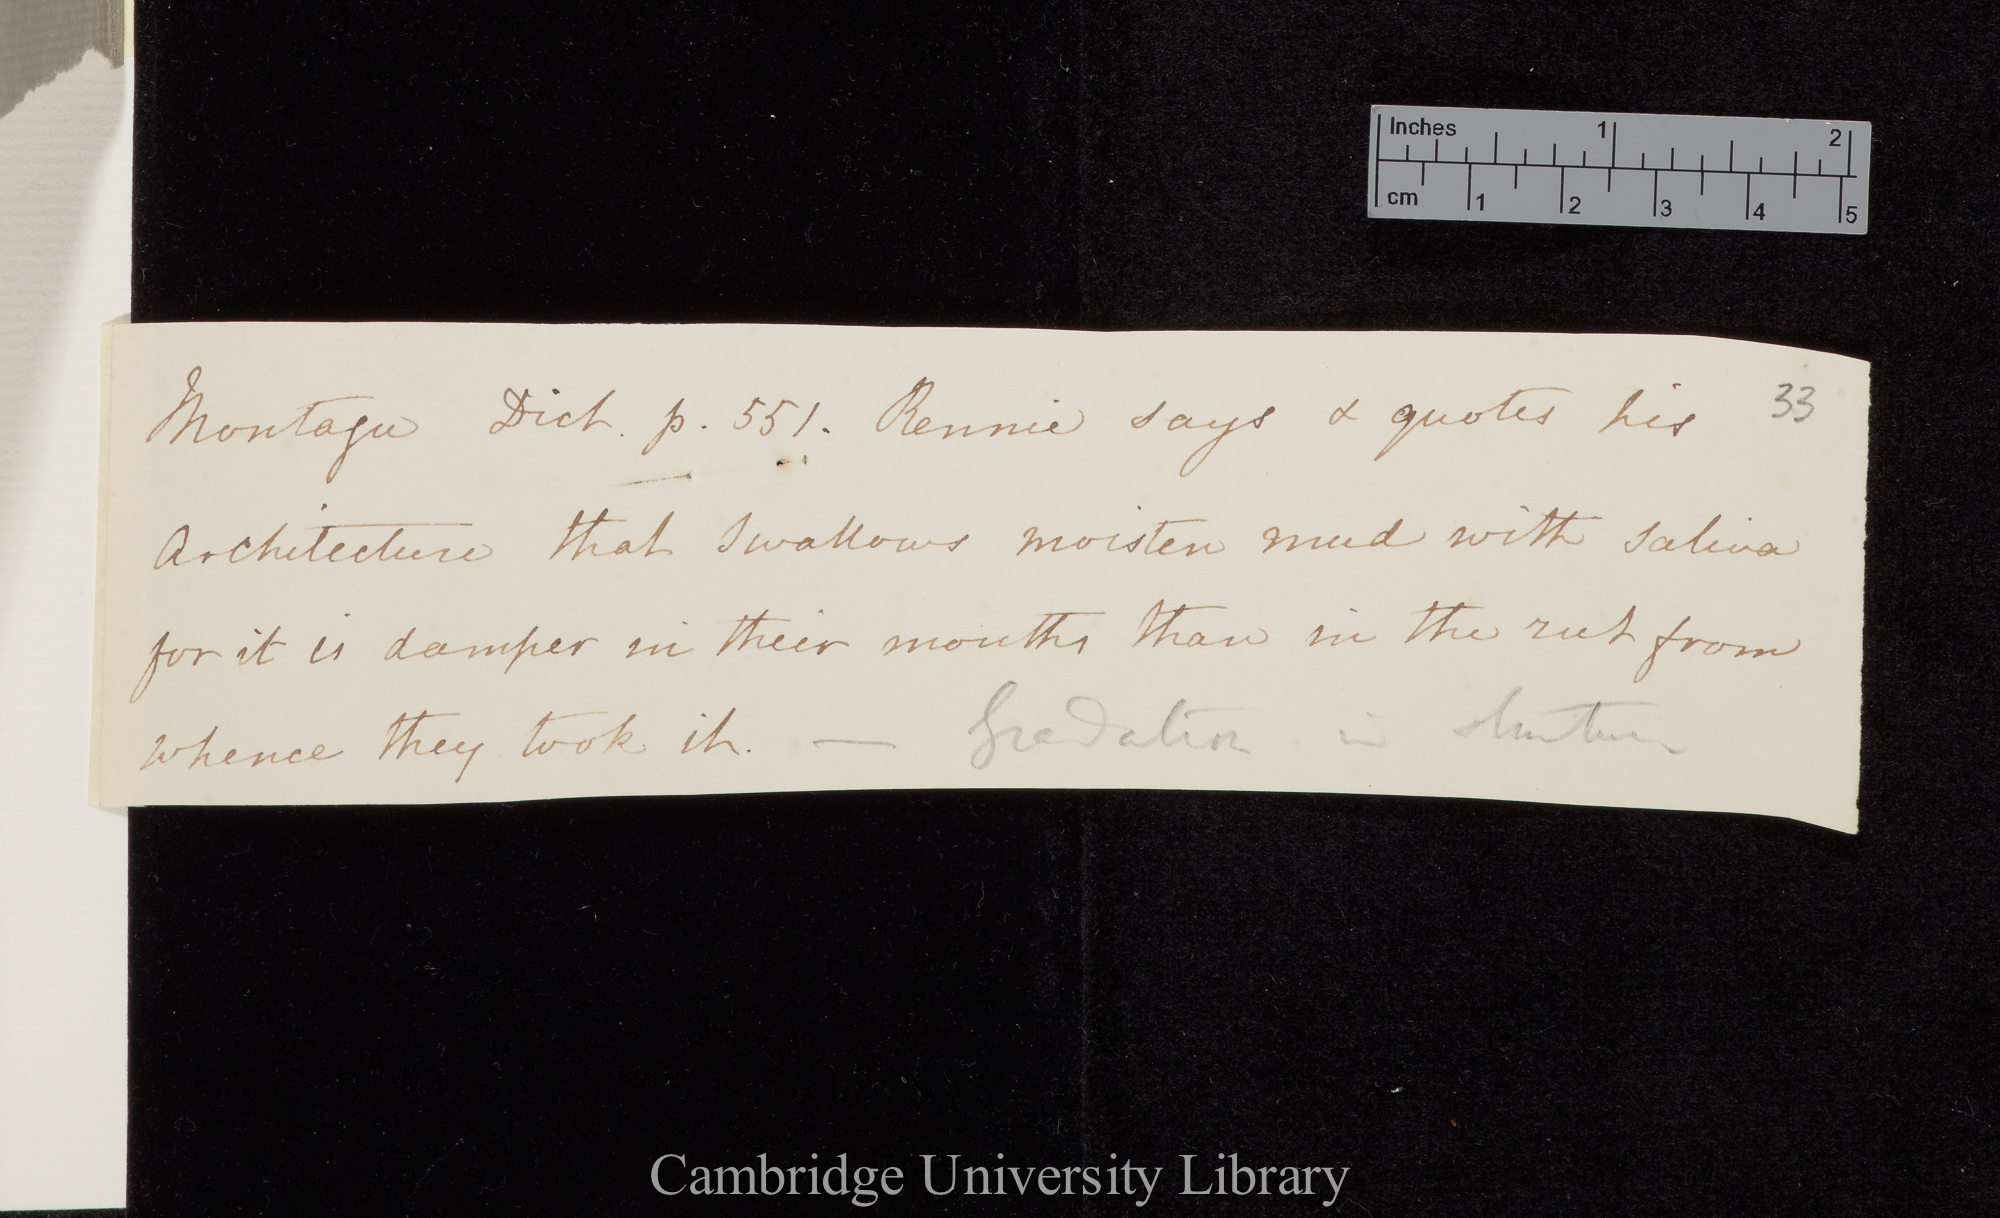 Inches 1 2
cm 1 2 3 4 5
33
Montagu Dict. p. 551. Rennie says & quotes his
Architecture that swallows moisten mud with saliva
for it is damper in their mouths than in the rut from
whence they took it. — Gradation in
Cambridge University Library